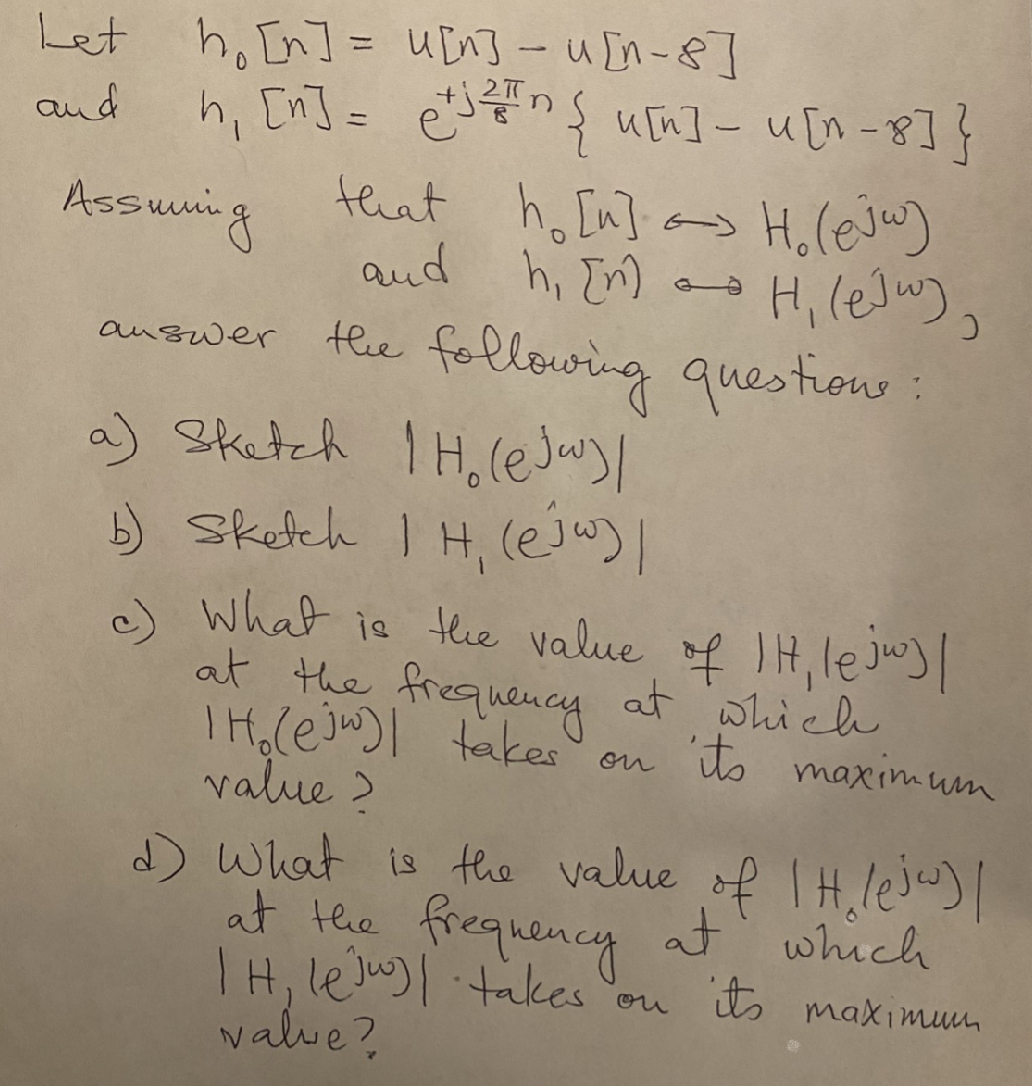 Let h₀[n] = u[n] - u[n-8]
and h₁[n] = e^{+j 2π/8 n} { u[n] - u[n-8] }
Assuming that h₀[n] ↔ H₀(e^{jω})
and h₁[n] ↔ H₁(e^{jω}),
answer the following questions:
a) Sketch |H₀(e^{jω})|
b) Sketch |H₁(e^{jω})|
c) What is the value of |H₁(e^{jω})|
at the frequency at which
|H₀(e^{jω})| takes on its maximum
value?
d) What is the value of |H₀(e^{jω})|
at the frequency at which
|H₁(e^{jω})| takes on its maximum
value?